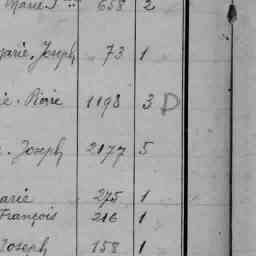 Marie J 658 2
Marie, Joseph 73 1
Pierre 1198 3 D
Joseph 2177 5
Marie 275 1
François 216 1
Joseph 158 1